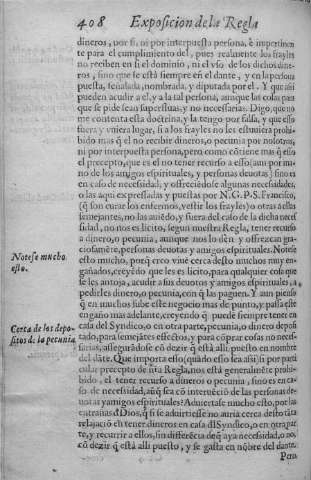 408 Exposicion de la Regla
dineros, por si, ni por interpuesta persona, è impertinen
te para el cumplimiento del, pues realmente los frayles
no reciben en si el dominio, ni el vso de los dichos dine-
ros, sino que se està siempre en el dante, y en la persona
puesta, señalada, nombrada, y diputada por el. Y que assi
pueden acudir a el, y a la tal persona, aunque las cosas para
que se pide sean superfluas, y no necessarias. Digo que no
me contenta esta doctrina, y la tengo por falsa, y que esso
fuera y uviera lugar, si a los frayles no les estuviera prohi-
bido mas q̃ el no recibir dineros, o pecunia por nosotros,
ni por interpuesta persona, pero como cõtiene mas q̃ esso
el precepto, que es el no tener recurso a esso (aun por mi-
no de los amigos espirituales, y personas devotas) sino es
en caso de necessidad, y offreciẽdose algunas necessidades,
o las aqui expressadas y puestas por N.G.P.S. Francisco,
(q̃ son curar los enfermos, vestir los frayles) o otras a ellas
semejantes, no las aviẽdo, y fuera del caso de la dicha neces
sidad, no nos es licito, segun nuestra Regla, tener recurso
a dinero, o pecunia, aunque nos lo dẽn y offrezcan gra-
ciosamẽte, personas devotas y amigos espirituales. Notese
esto mucho, porq̃ creo vive cerca desto muchos muy en-
gañados, creyẽdo que les es licito, para qualquier cosa que
se les antoja, acudir a sus devotos y amigos espirituales, a
pedirles dinero, o pecunia, con q̃ las paguen. Y aun pienso
q̃ en muchos sube este negocio mas de punto, y passa este
engaño mas adelante, creyendo q̃ puede siempre tener en
casa del Syndico, o en otra parte, pecunia, o dinero deposi
tado, para semejantes effectos, y para cõprar cosas no neces-
sarias, assegurãdose cõ dezir q̃ està alli puesto en nombre
del dãte. Que importa esso (quãdo esso sea assi) si por parti
cular precepto de nr̃a Regla, nos està generalmẽte prohi-
bido, el tener recurso a dineros o pecunia, sino es en ca-
so de necessidad, aũq̃ sea cõ interveciõ de las personas de-
votas y amigos espirituales? Adviertase mucho esto, por las
entrañas d̃ Dios, q̃ si se advirtiesse no auria cerca desto tãta
relajaciõ en tener dineros en casa d̃l Syndico, o en otra par
te, y recurrir a ellos, sin differẽcia de q̃ aya necessidad, o no,
cõ dezir q̃ està alli puesto, y se gasta en nõbre del dante.
Pero
Notese mucho
esto.
Cerca de los depo-
sitos d̃ la pecunia